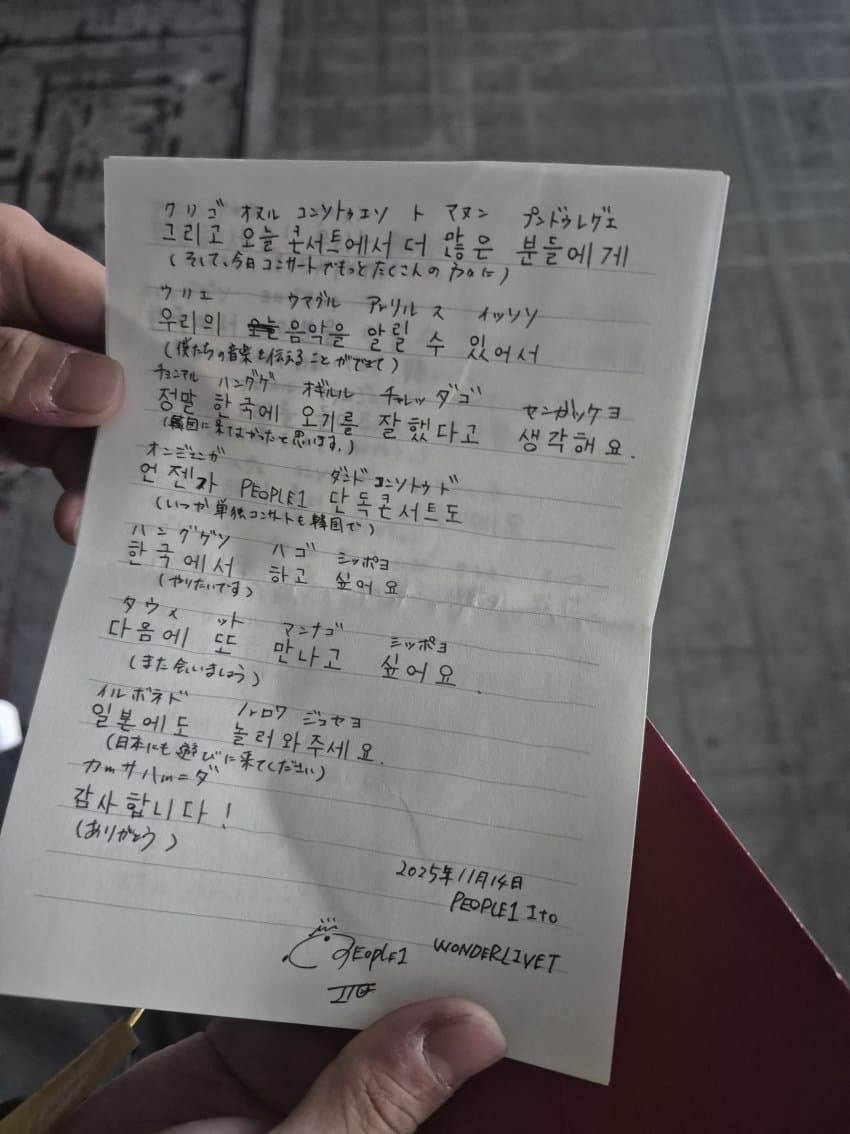 クリゴ オヌル コンソトゥエソ ト マヌン プンドゥレゲエ
그리고 오늘 콘서트에서 더 많은 분들에게
(そして、今日コンサートでもっとたくさんの方々に)
ウリエ ウマグル アルリル ス イッソソ
우리의 음악을 알릴 수 있어서
(僕たちの音楽を伝えることができて)
チョンマル ハングゲ オギルル チャレッダゴ センガッケヨ
정말 한국에 오기를 잘했다고 생각해요.
(韓国に来てよかったと思います。)
オンジェンガ ダンドコンソトゥド
언젠가 PEOPLE1 단독콘서트도
(いつか単独コンサートも韓国で)
ハングゲソ ハゴ シッポヨ
한국에서 하고 싶어요
(やりたいです)
タウメ ット マンナゴ シッポヨ
다음에 또 만나고 싶어요.
(また会いましょう)
イルボネド ノルロワ ジュセヨ
일본에도 놀러와주세요.
(日本にも遊びに来てください)
カmサハmニダ
감사합니다!
(ありがとう)
2025年11月14日
PEOPLE1 Ito
PEOPLE1 WONDERLIVET